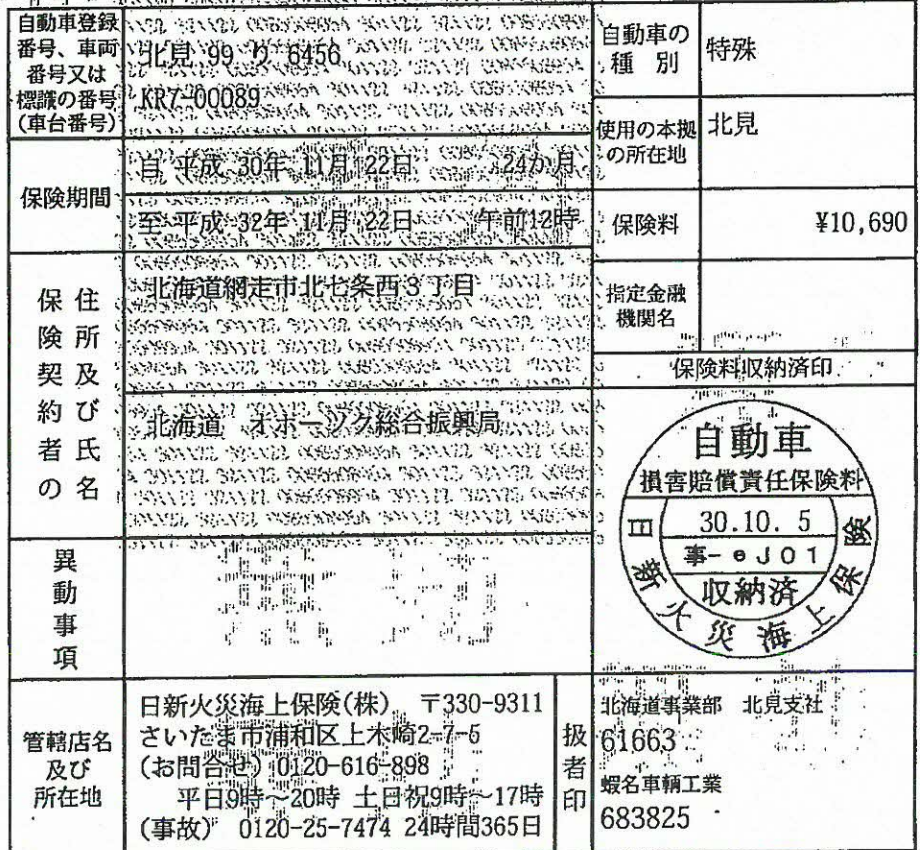 自動車登録
番号、車両
番号又は
標識の番号
(車台番号)
北見 99 り 6456
KR7-00089
自動車の
種 別
特殊
使用の本拠
の所在地
北見
保険期間
自 平成 30年 11月 22日 24か月
至 平成 32年 11月 22日 午前12時
保険料
¥10,690
保険契約者の
住所及び氏名
北海道網走市北七条西3丁目
北海道 オホーツク総合振興局
指定金融
機関名
保険料収納済印
自動車
損害賠償責任保険料
30.10.5
事-eJ01
収納済
日新火災海上保険
異動事項
管轄店名
及び
所在地
日新火災海上保険(株) 〒330-9311
さいたま市浦和区上木崎2-7-5
(お問合せ) 0120-616-898
平日9時~20時 土日祝9時~17時
(事故) 0120-25-7474 24時間365日
扱者印
北海道事業部 北見支社
61663
蝦名車輌工業
683825